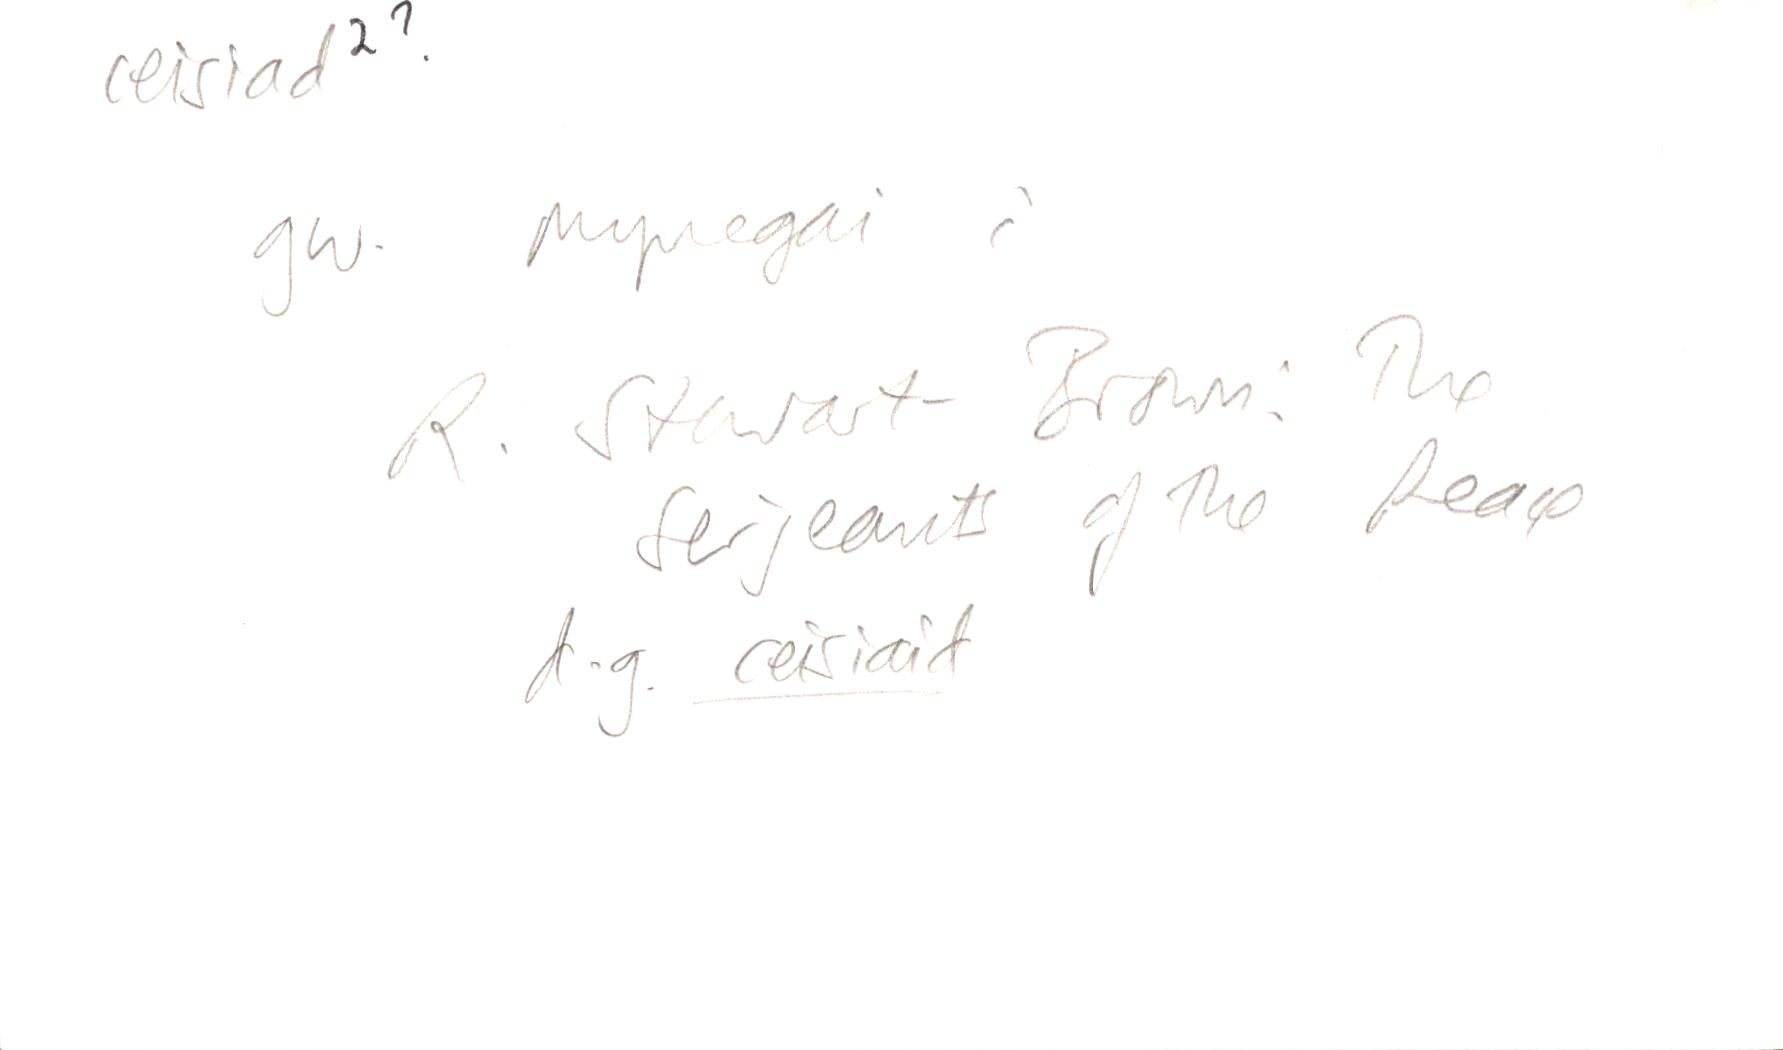 ceisiad²?.
gw. mynegai i
R. Stewart-Brown: The
Serjeants of the Peace
d.g. ceisiaid